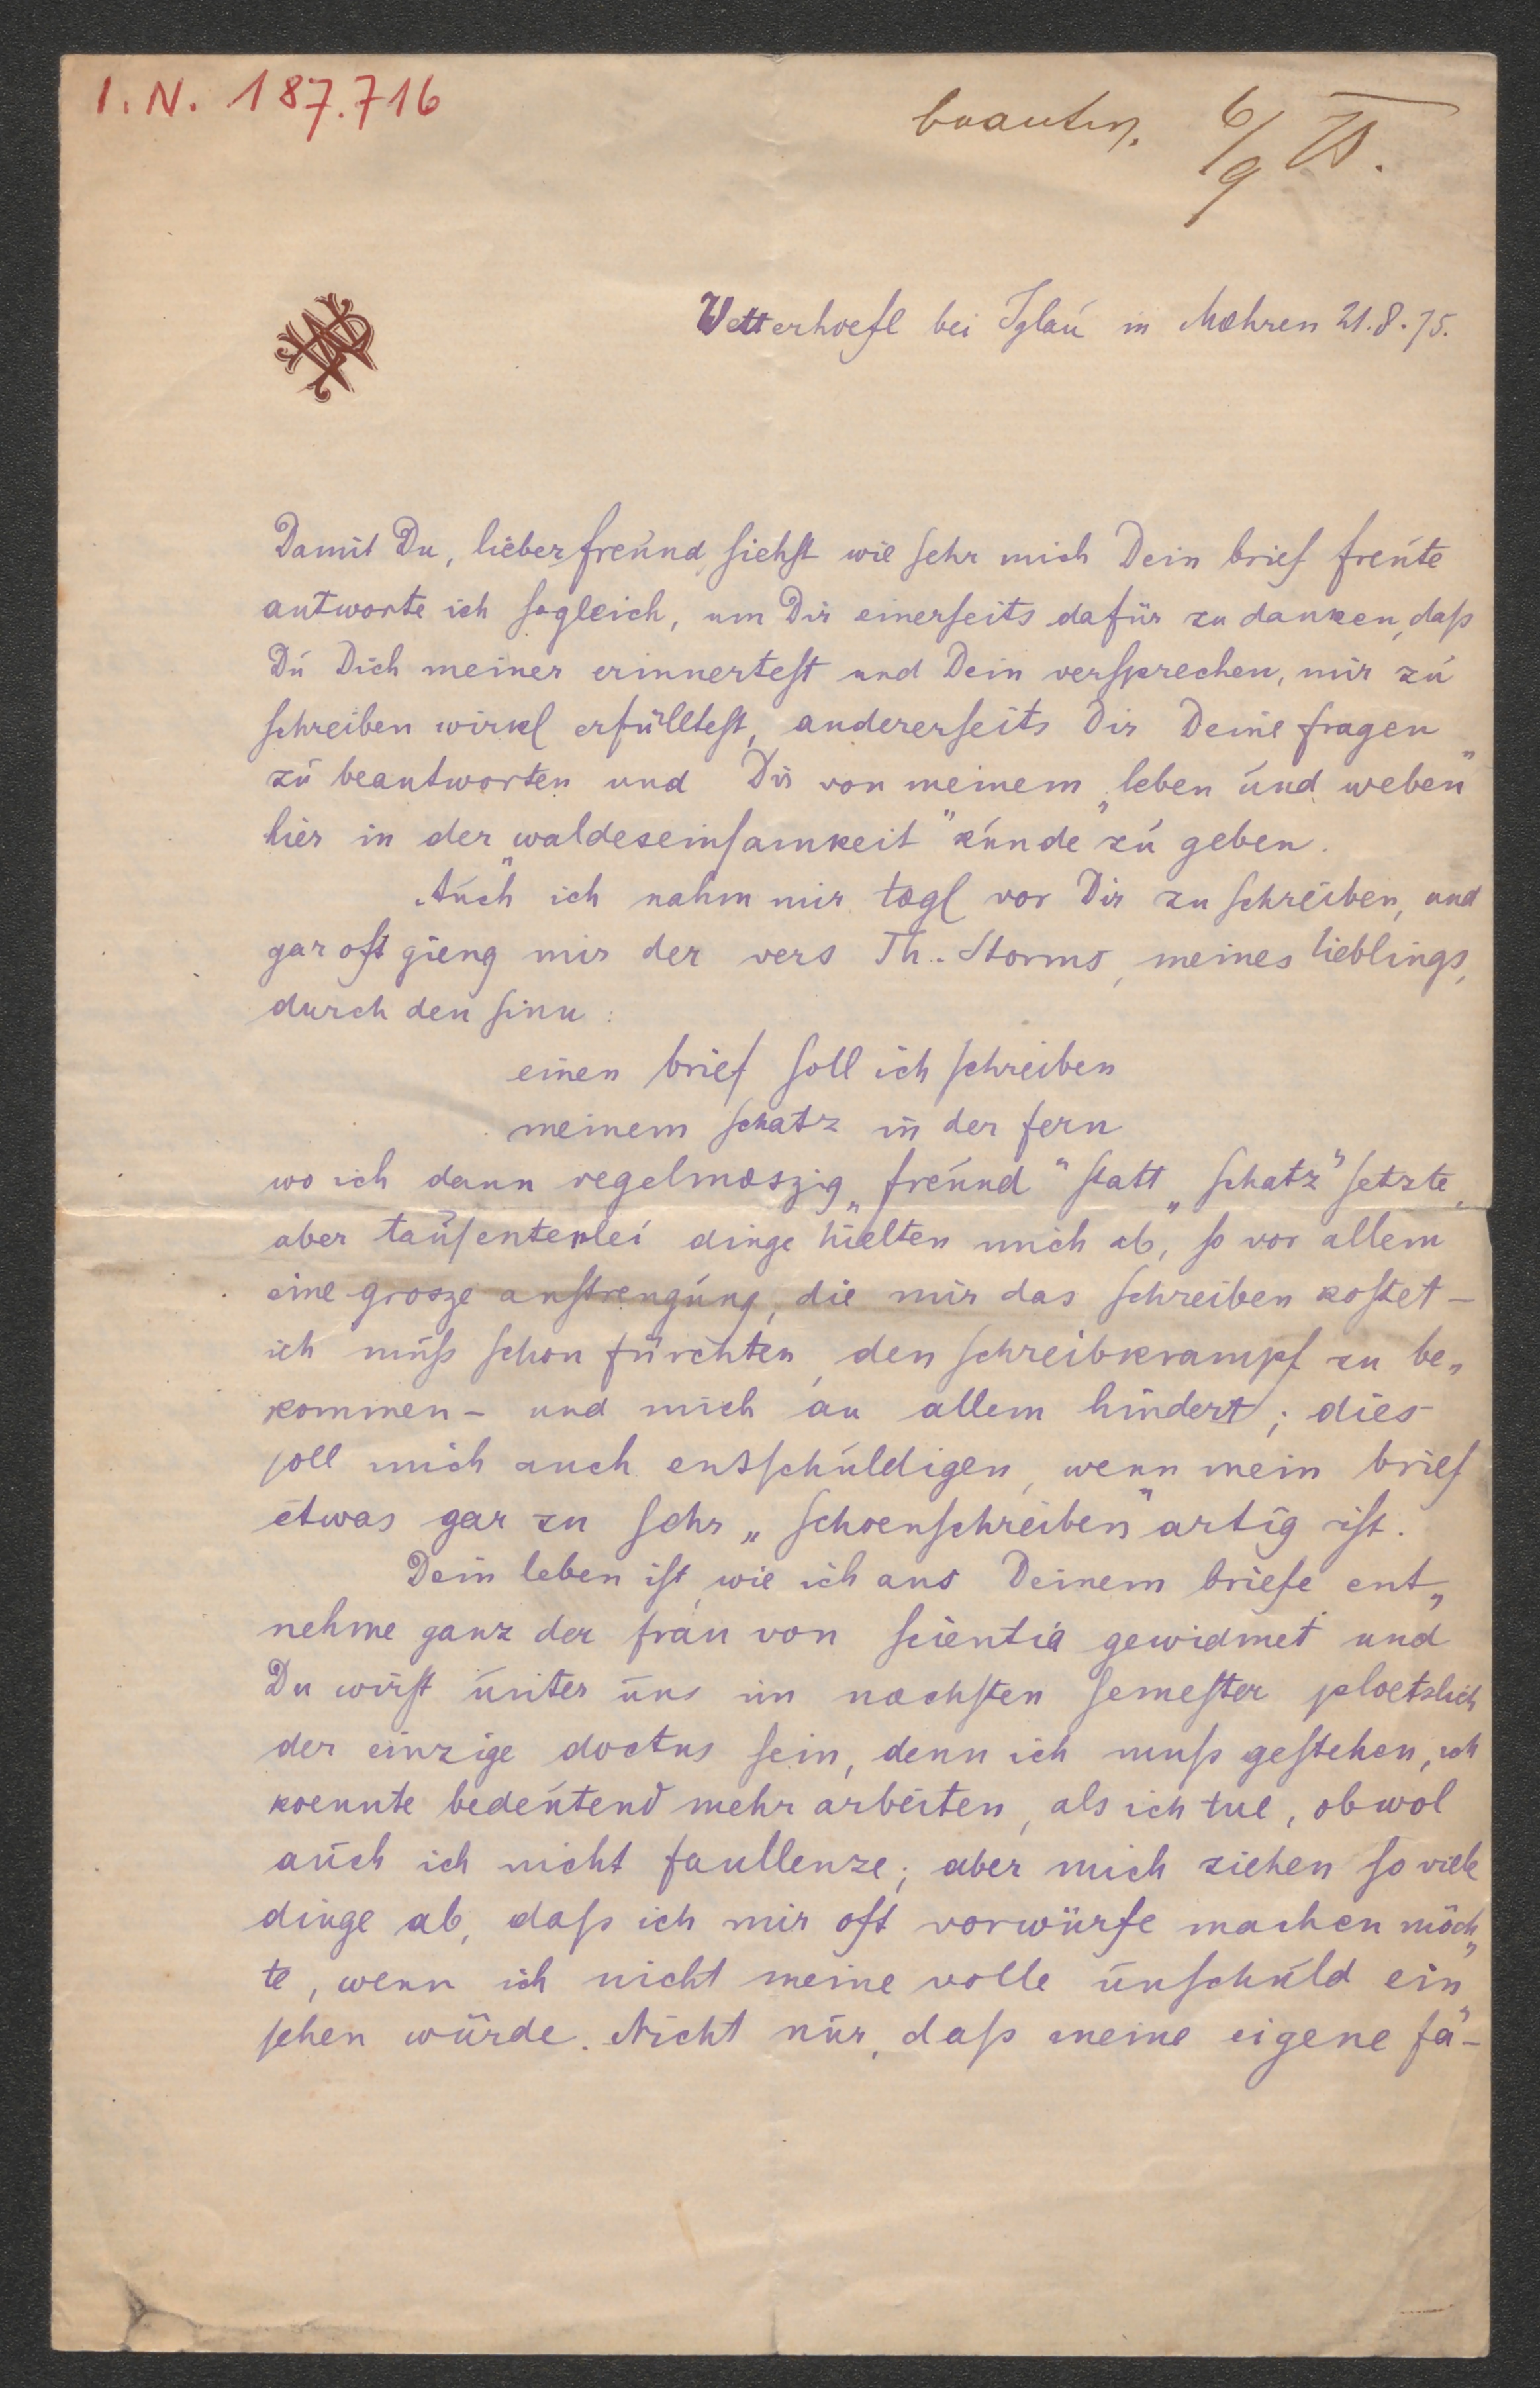 I. N. 187.716
beantw. 6/9 75.
Vetterhoefl bei Iglau in Mæhren 21.8.75.
Damit Du, lieber freund, siehst wie sehr mich Dein brief freute
antworte ich sogleich, um Dir einerseits dafür zu danken, dass
Du Dich meiner erinnertest und Dein versprechen, mir zu
schreiben wirkl erfülltest, andererseits Dir Deine fragen
zu beantworten und Dir von meinem „leben und weben"
hier in der „waldeseinsamkeit" kunde zu geben.
Auch ich nahm mir tægl vor Dir zu schreiben, und
gar oft gieng mir der vers Th. Storms, meines lieblings,
durch den sinn:
einen brief soll ich schreiben
meinem schatz in der fern
wo ich dann regelmæszig „freund" statt „schatz" setzte,
aber tausenterlei dinge hielten mich ab, so vor allem
eine grosze anstrengung, die mir das schreiben kostet –
ich muss schon fürchten, den schreibkrampf zu be„
kommen – und mich an allem hindert; dies
soll mich auch entschuldigen, wenn mein brief
etwas gar zu sehr „schoenschreiben" artig ist.
Dein leben ist, wie ich aus Deinem briefe ent„
nehme ganz der frau von scientia gewidmet und
Du wirst unter uns im næchsten semester ploetzlich
der einzige doctus sein, denn ich muss gestehen, ich
koennte bedeutend mehr arbeiten, als ich tue, obwol
auch ich nicht faullenze; aber mich ziehen so viele
dinge ab, dass ich mir oft vorwürfe machen möch„
te, wenn ich nicht meine volle unschuld ein„
sehen würde. Nicht nur, dass meine eigene fa-